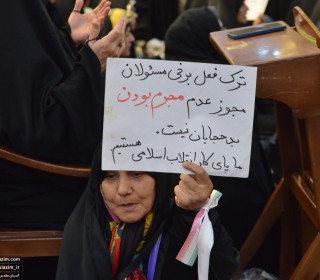 ترک فعل برخی مسئولان
مجوز عدم مجرم بودن
بدحجابان نیست.
ما پای کار انقلاب اسلامی هستیم